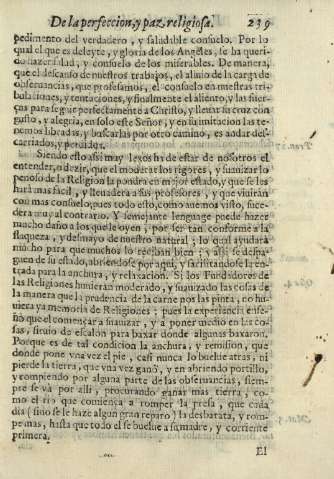 De la perfeccion, y paz religiosa. 239
pedimento del verdadero, y saludable consuelo. Por lo
qual el que es deleyte, y gloria de los Angeles, se ha queri-
do hazer salud, y consuelo de los miserables. De manera,
que el descanso de nuestros trabajos, el aliuio de la carga de
obseruancias, que professamos, el consuelo en nuestras tri-
bulaciones, y tentaciones, y finalmente el aliento, y las fuer-
ças para seguir perfectamente a Christo, y lleuar su cruz con
gusto, y alegria, en solo este Señor, y en su imitacion las te-
nemos libradas, y buscarlas por otro camino, es andar des-
carriados, y perdidos.
Siendo esto assi muy lexos ha de estar de nosotros el
entender, o dezir, que el moderar los rigores, y suauizar lo
penoso de la Religion la pondra en mejor estado, y que se les
hará mas facil, y lleuadera a sus professores, y que viuirán
con mas consuelo; pues todo esto, como auemos visto, suce-
dera muy al contrario. Y semejante lenguage puede hazer
mucho daño a los que le oyen, por ser tan conforme a la
flaqueza, y desmayo de nuestro natural; lo qual ayudará
mucho para que muchos lo reciban bien; y assi se desfra-
guen de su estado, abriendose por aqui, y facilitandose la en-
trada para la anchura, y relaxacion. Si los Fundadores de
las Religiones huuieran moderado, y suauizado las cosas de
la manera que la prudencia de la carne nos las pinta, no hu-
uiera ya memoria de Religiones; pues la experiencia ense-
ñó que el començar a suauizar, y a poner medio en las co-
sas, siruio de escalon para baxar donde algunas baxaron.
Porque es de tal condicion la anchura, y remission, que
donde pone vna vez el pie, casi nunca lo buelue atras, ni
pierde la tierra, que vna vez ganó, y en abriendo portillo,
y rompiendo por alguna parte de las obseruancias, siem-
pre se va por alli, procurando ganar mas tierra, co-
mo el rio que comiença a romper la presa, que cada
dia (sino se le haze algun gran reparo) la desbarata, y rom-
pe mas, hasta que todo el se buelue a su madre, y corriente
primera.
El